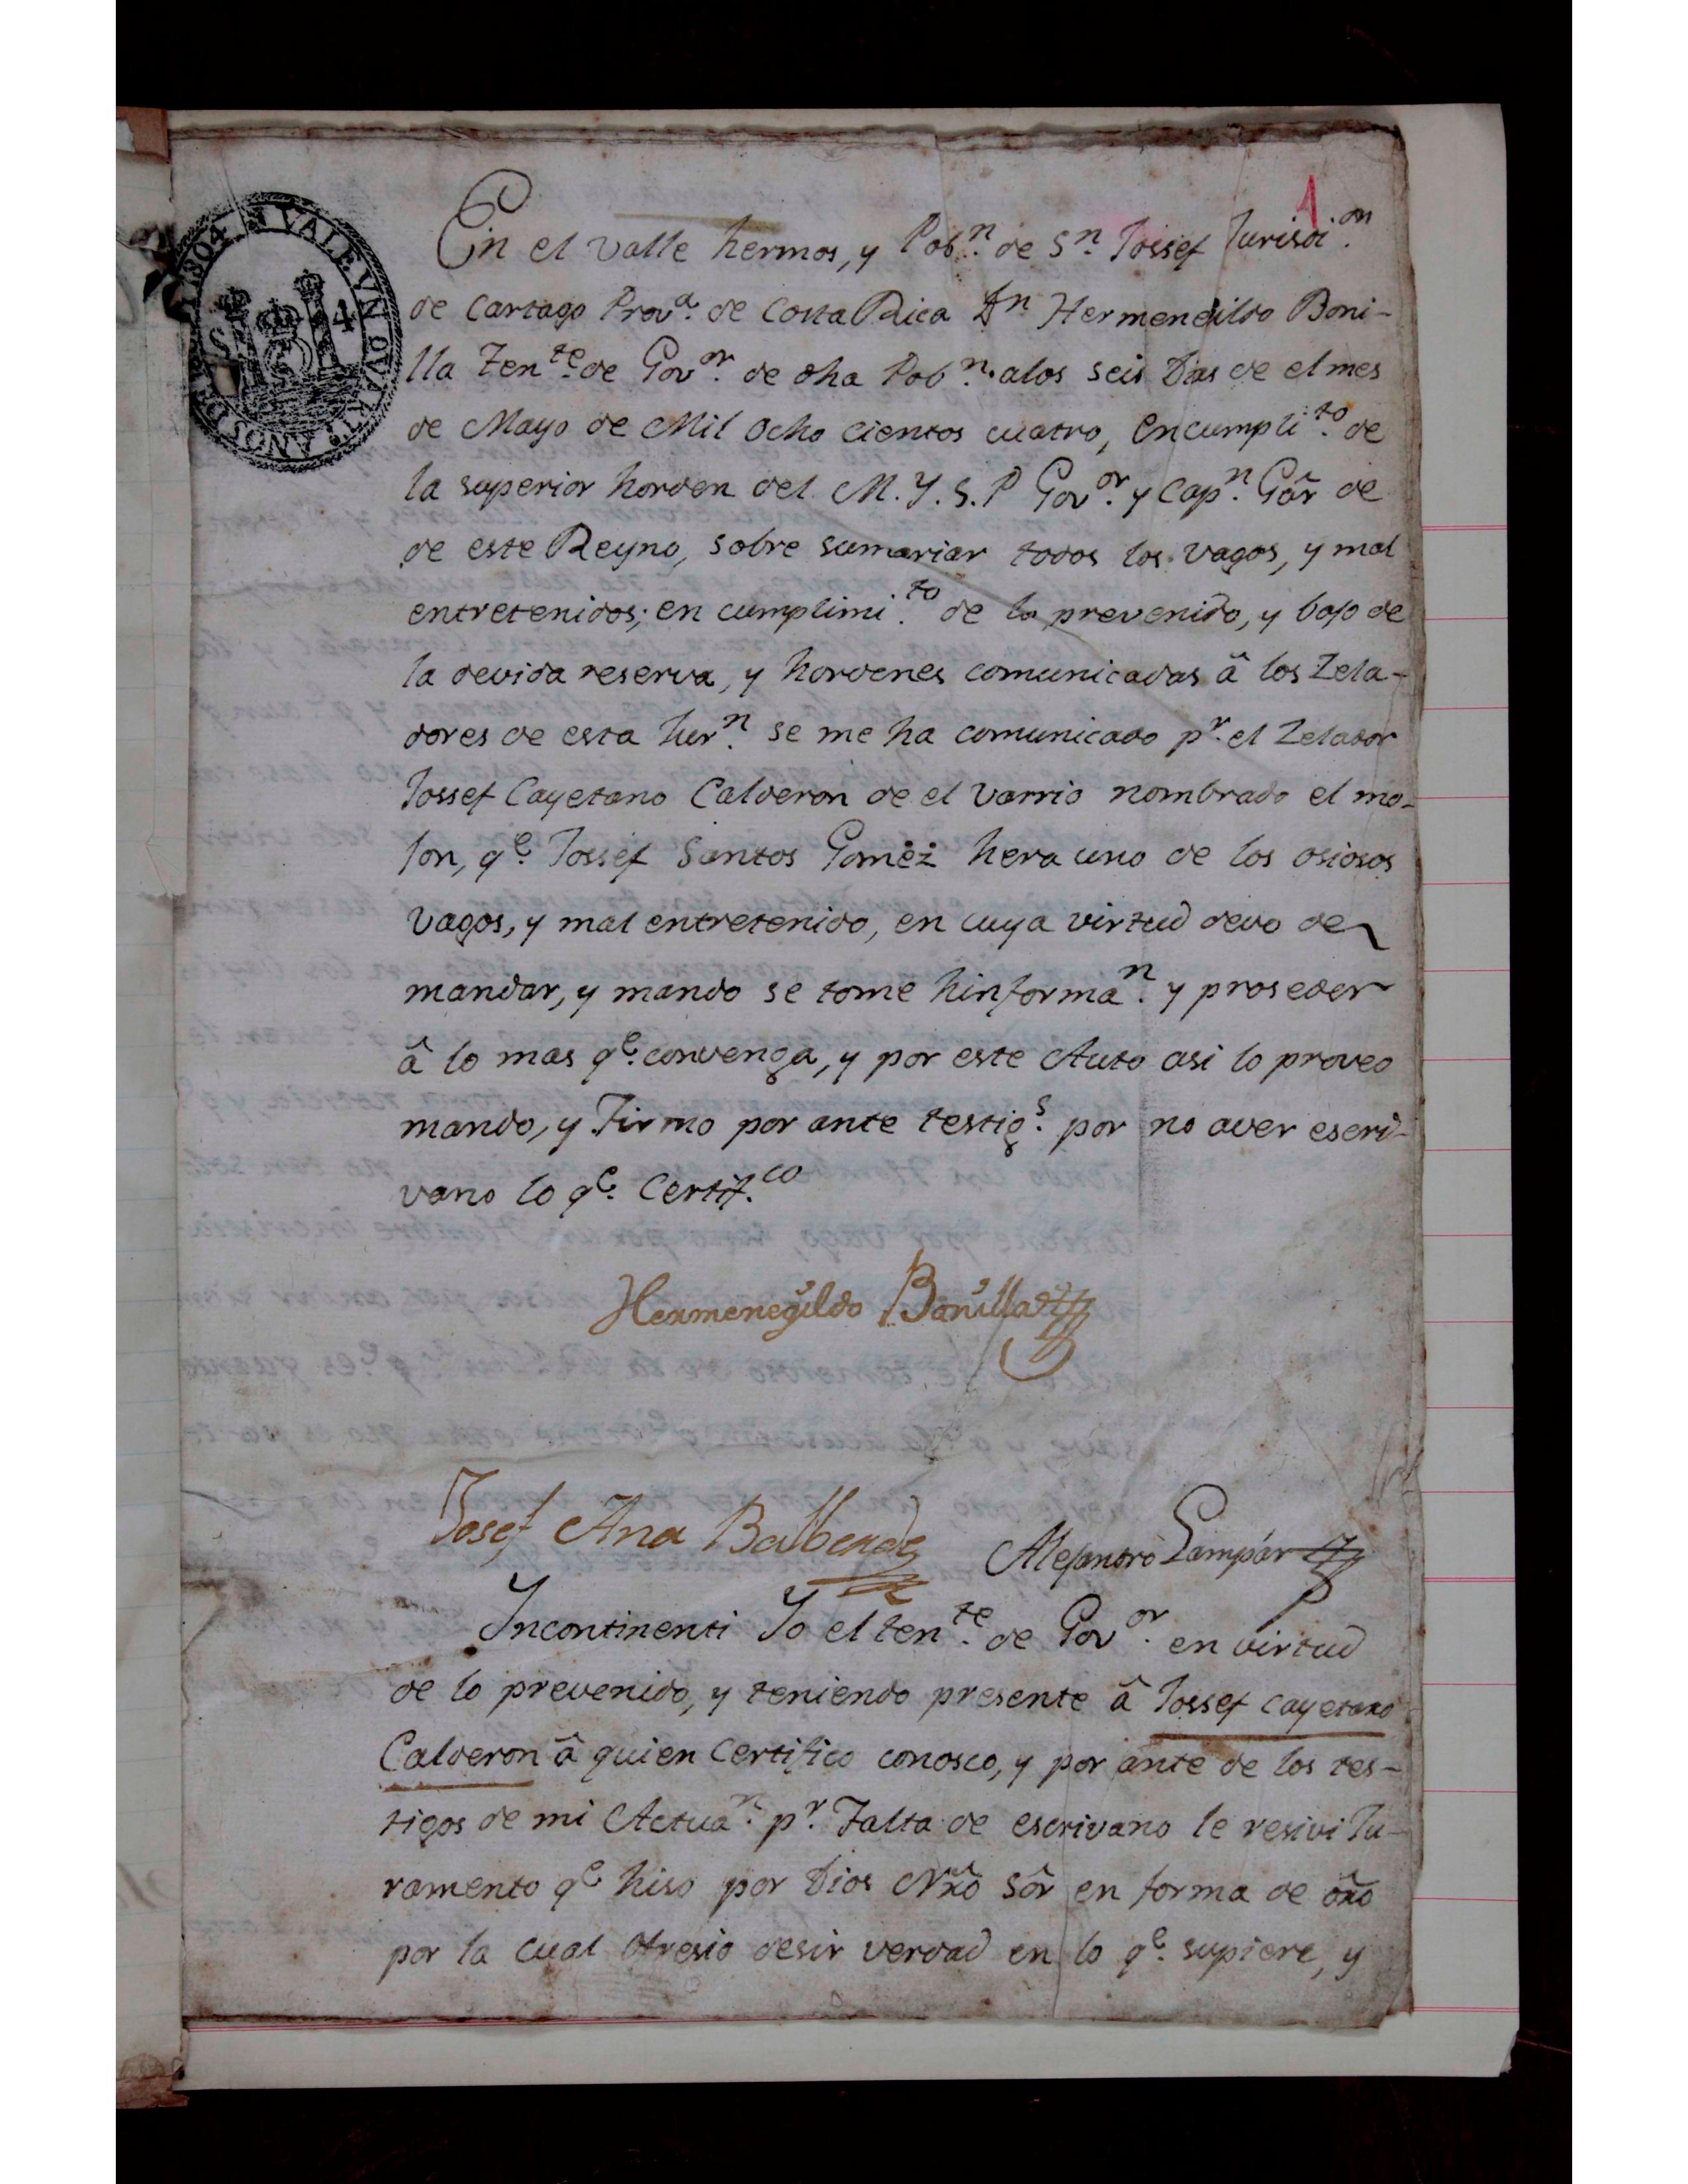 1
VALE UN QUART. AÑOS DE 1804
S 4
En el valle hermos, y Pobn. de Sn. Jossef Jurisdi.on
de Cartago Prova. de Costa Rica Dn Hermenegildo Boni-
lla Tente. de Govor. de dha Pobn. alos seis Dias de el mes
de Mayo de Mil ocho cientos cuatro, en cumplito. de
la superior horden del M. Y. S. P Govor. y Capn. Gâr de
de este Reyno, sobre sumariar todos los vagos, y mal
entretenidos; en cumplimito. de lo prevenido, y bajo de
la devida reserva, y hordenes comunicadas â los Zela-
dores de esta Jurn. se me ha comunicado pr. el Zelador
Jossef Cayetano Calderon de el varrio nombrado el mo-
jon, qe. Jossef Santos Gomez hera uno de los osiosos
vagos, y mal entretenido, en cuya virtud devo de
mandar, y mando se tome hinforman. y proseder
â lo mas qe. convenga, y por este Auto asi lo proveo
mando, y Firmo por ante testigs. por no aver escri-
vano lo qe. Certif.co
Hermenegildo Bonilla
Josef Ana Balberde
Alejandro Gampár
Incontinenti Yo el tente. de Govor. en virtud
de lo prevenido, y teniendo presente â Jossef Cayetano
Calderon â quien Certifico conosco, y por ante de los tes-
tigos de mi Actuan. pr. Falta de escrivano le resivi Ju-
ramento qe hiso por Dios Nrô Sôr en forma de dro
por la cual Ofresio desir verdad en lo qe. supiere, y